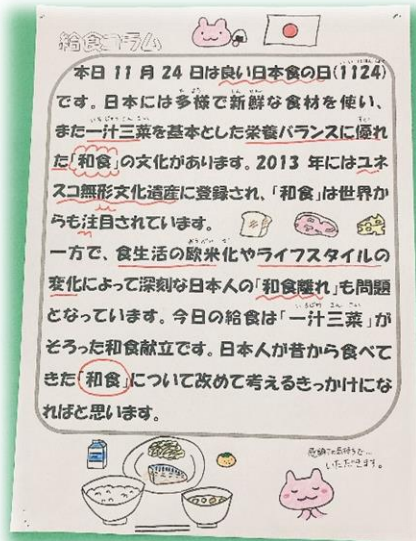 給食コラム
本日11月24日は良い日本食の日(1124)
です。日本には多様で新鮮な食材を使い、
また一汁三菜を基本とした栄養バランスに優れ
た「和食」の文化があります。2013年にはユネ
スコ無形文化遺産に登録され、「和食」は世界か
らも注目されています。
一方で、食生活の欧米化やライフスタイルの
変化によって深刻な日本人の「和食離れ」も問題
となっています。今日の給食は「一汁三菜」が
そろった和食献立です。日本人が昔から食べて
きた「和食」について改めて考えるきっかけにな
ればと思います。
いただきます。